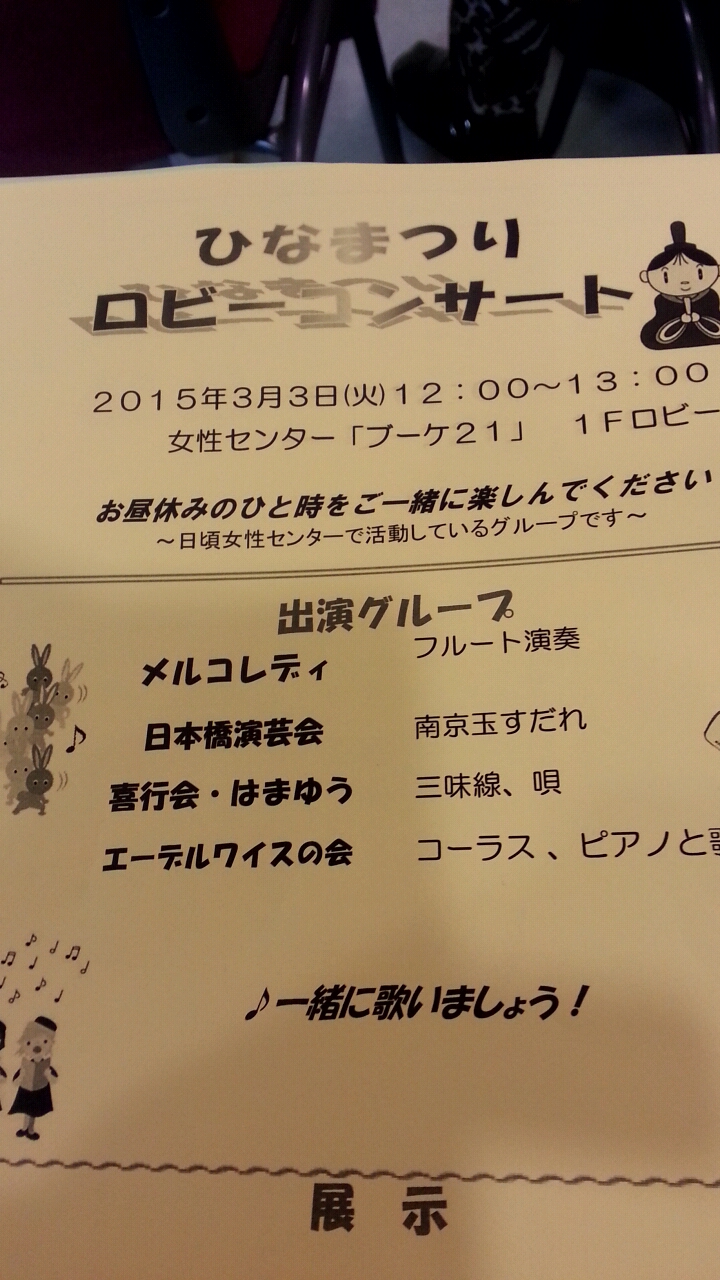 ひなまつり
ロビーコンサート
2015年3月3日(火)12：00～13：00
女性センター「ブーケ21」　1Fロビー
お昼休みのひと時をご一緒に楽しんでください
～日頃女性センターで活動しているグループです～
出演グループ
メルコレディ　フルート演奏
日本橋演芸会　南京玉すだれ
喜行会・はまゆう　三味線、唄
エーデルワイスの会　コーラス、ピアノと
♪一緒に歌いましょう！
展 示